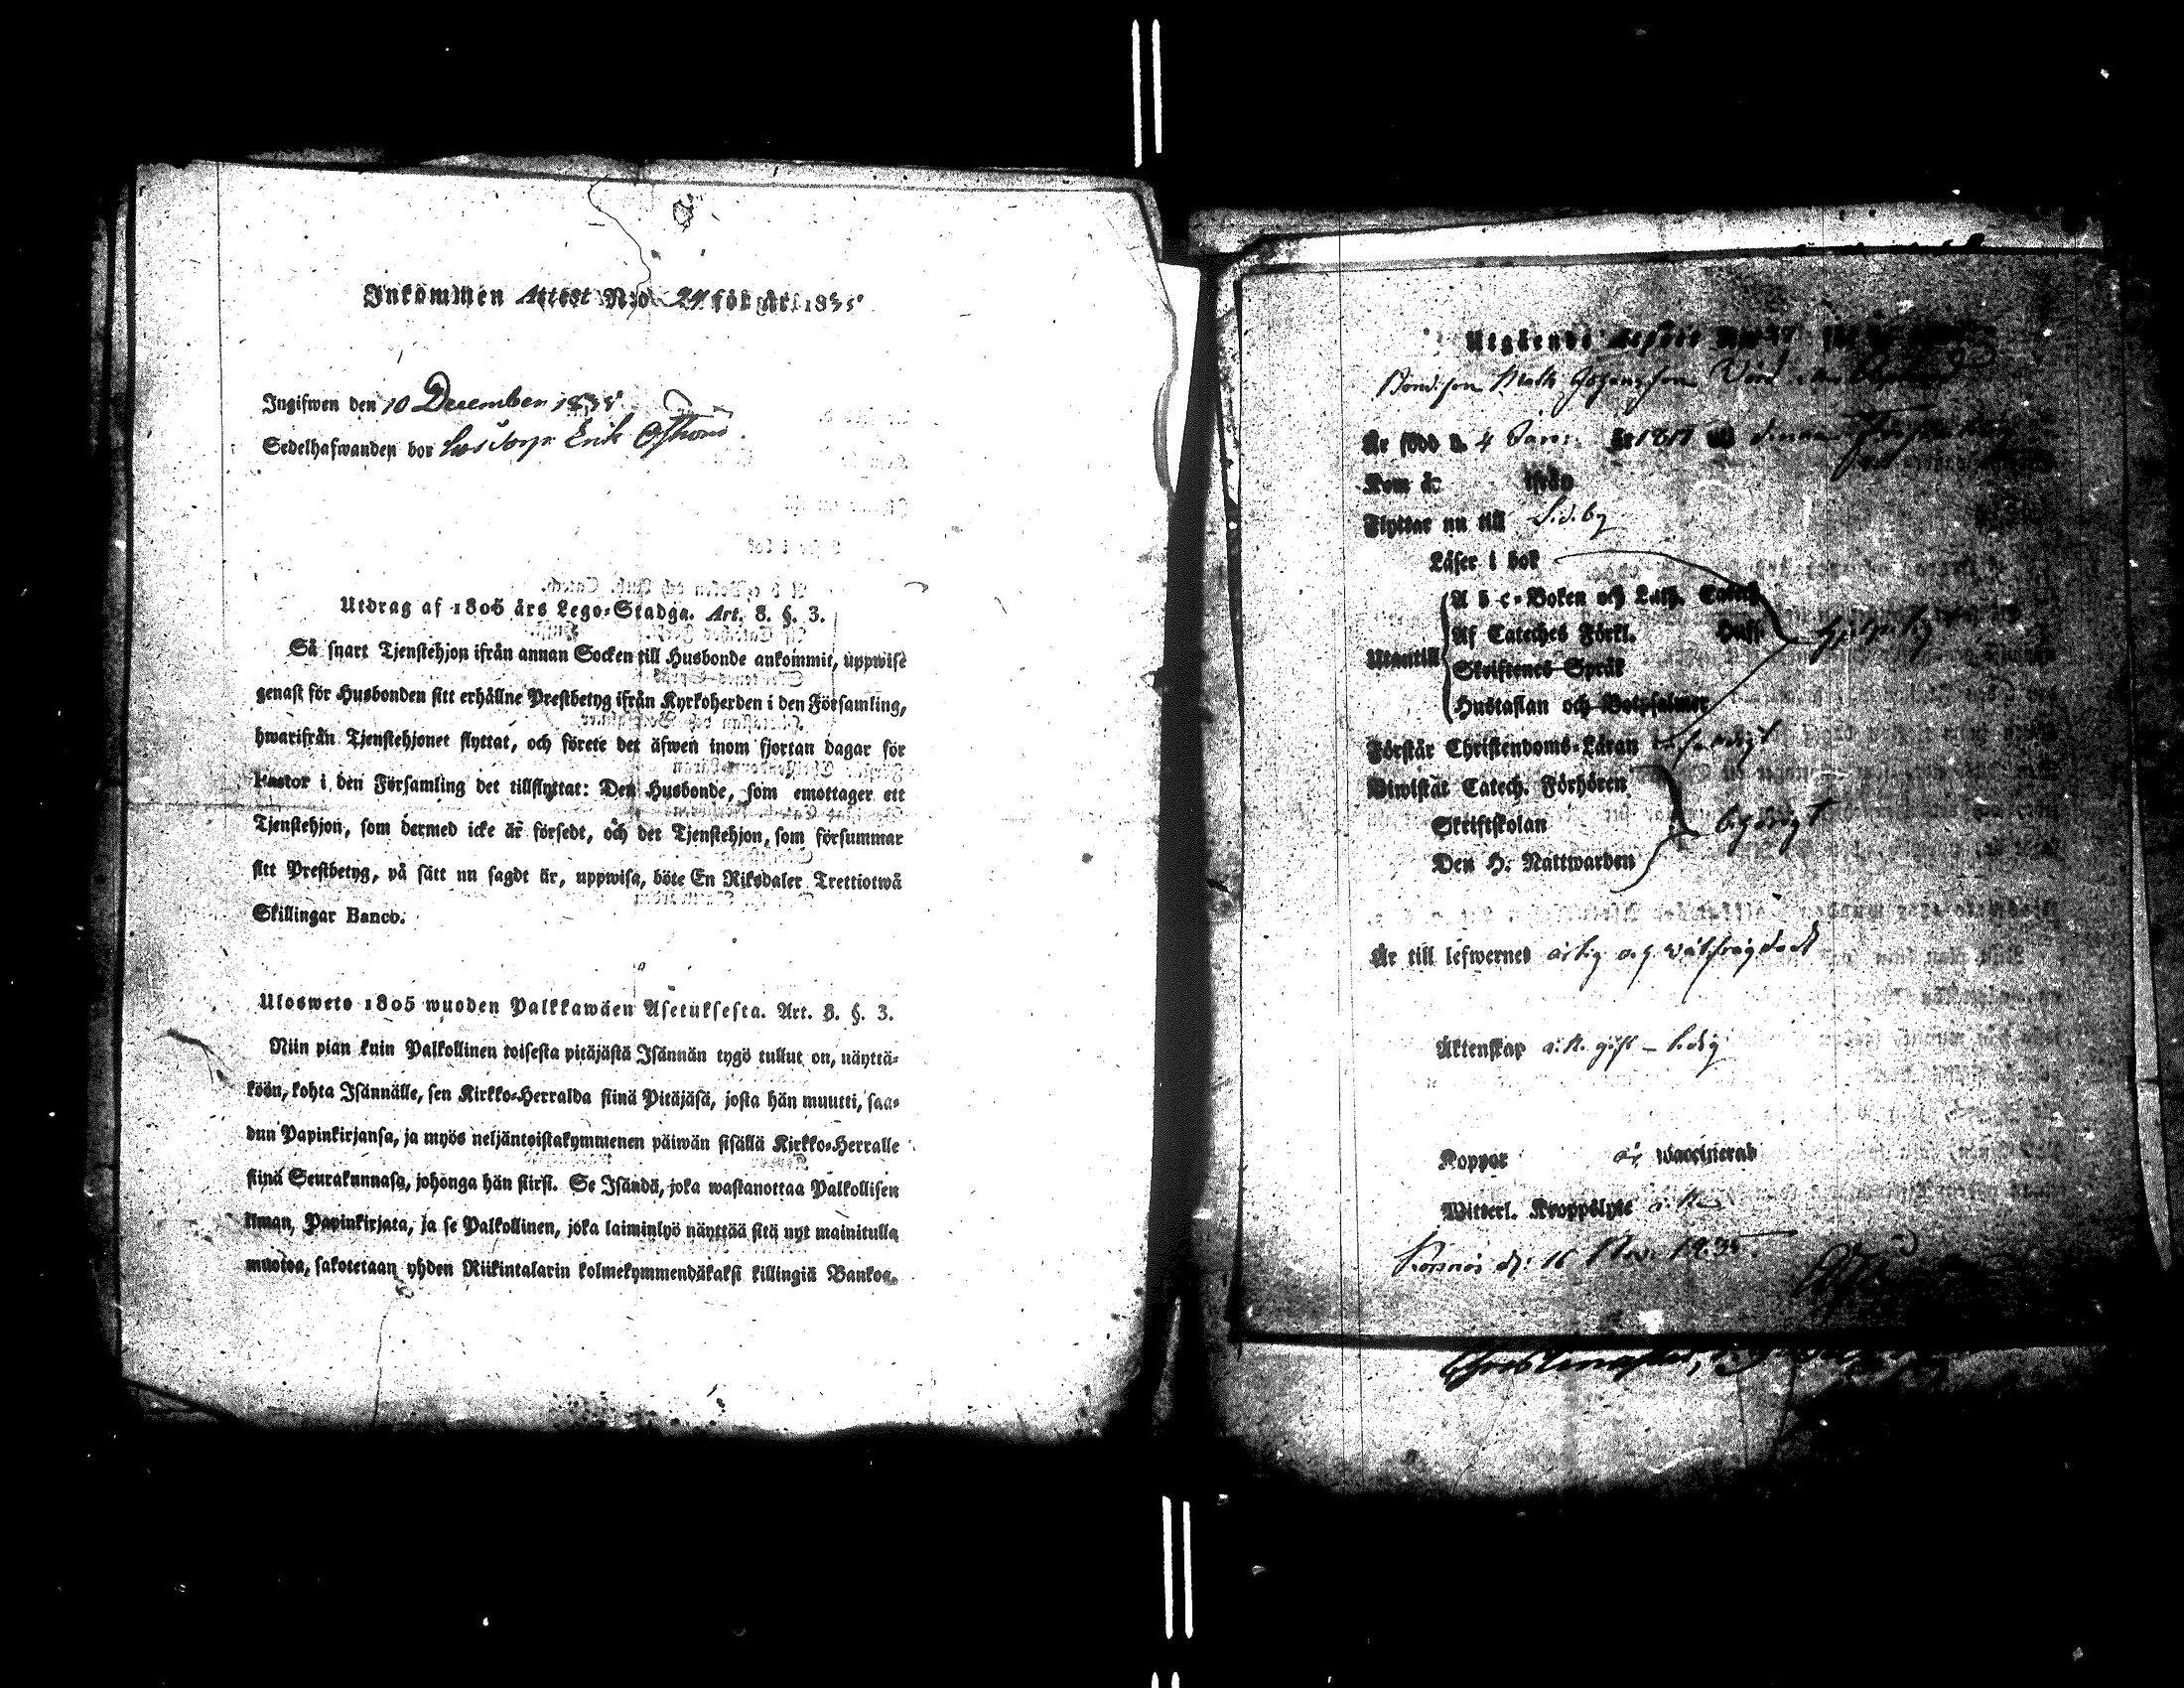 Inkommen Attest N:o 24 för år 1835
Ingifwen den 10 December 1835
Sedelhafwanden bor hos Torp. Erik
Utdrag af 1805 års Lego-Stadga. Art. 8. §. 3.
Så snart Tjenstehjon ifrån annan Socken till Husbonde ankommit, uppwise
genast för Husbonden sitt erhållne Prestbetyg ifrån Kyrkoherden i den Församling,
hwarifrån Tjenstehjonet flyttat, och förete det äfwen inom fjortan dagar för
Pastor i den Församling det tillflyttat: Den Husbonde, som emottager ett
Tjenstehjon, som dermed icke är försedt, och det Tjenstehjon, som försummar
sitt Prestbetyg, på sätt nu sagdt är, uppwisa, böte En Riksdaler Trettiotwå
Skillingar Banco.
Ulosweto 1805 wuoden Palkkawäen Asetuksesta. Art. 8. §. 3.
Niin pian kuin Palkollinen toisesta pitäjästä Isännän tygö tullut on, näyttä-
köön, kohta Isännälle, sen Kirkko-Herralda siinä Pitäjäsä, josta hän muutti, saa-
dun Papinkirjansa, ja myös neljäntoistakymmenen päiwän sisällä Kirkko-Herralle
siinä Seurakunnasa, johonga hän siirsi. Se Isändä, joka wastanottaa Palkollisen
ilman, Papinkirjata, ja se Palkollinen, joka laiminlyö näyttää sitä nyt mainitulla
muotoa, sakotetaan yhden Riikintalarin kolmekymmendäkaksi killingiä Bankoa.
Utgående Attest
Bond. son Matts Johansson
Är född d. 4 Janu. år 18 uti denna
Kom år ifrån
Flyttar nu till Sideby
Läser i bok
Utantill
A b c-Boken och Luth. Catech
Af Cateches Förkl. Husf
Skriftenes Språk
Hustaflan och Botpsalmer
Förstår Christendoms-Läran
Biwistat Catech. Förhören
Skriftskolan behörigt
Den H. Nattwarden
Är till lefwernes ärlig och wälfrägdad
Äktenskap ej gift - ledig
Koppor är Vaccinerad
Witterl. Kroppslyte
Korsnäs d: 16 Nov. 1835.